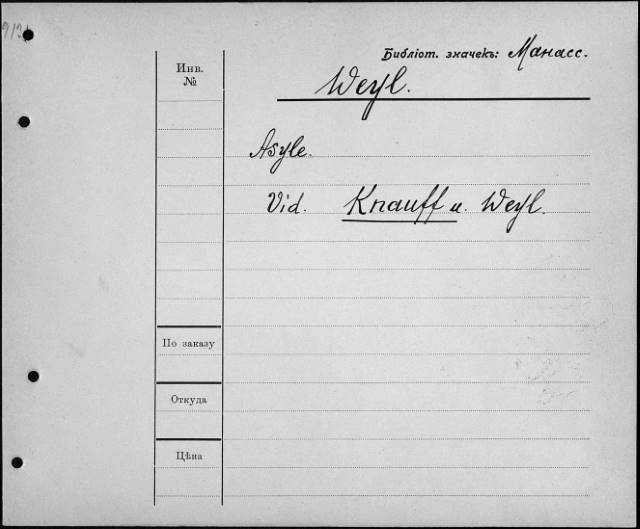 Инв.
№
Библіот. значекъ: Манасс.
Weyl.
Asyle.
Vid. Knauff u. Weyl.
По заказу
Откуда
Цѣна